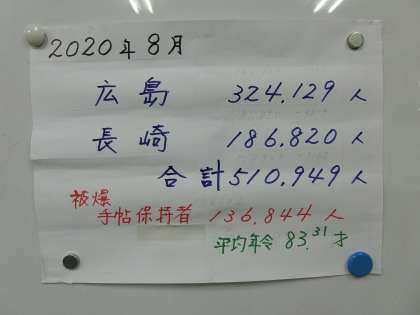 2020年8月
広島 324.129人
長崎 186.820人
合計 510.949人
被爆
手帖保持者 136.844人
平均年令 83.31才